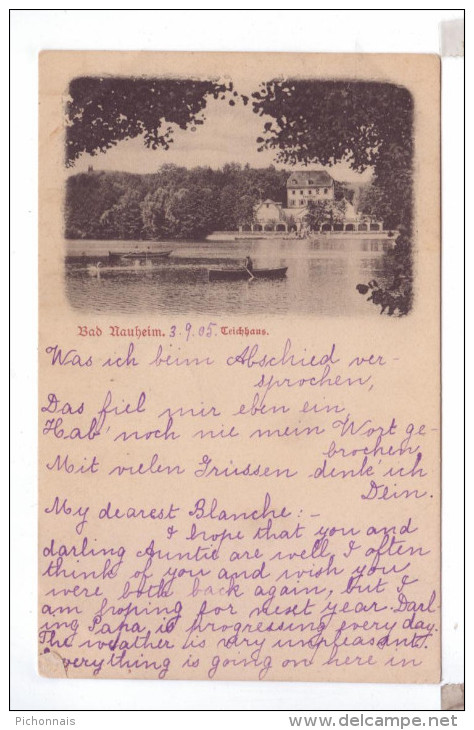 Bad Nauheim. 3.9.05. Teichhaus.
Was ich beim Abschied ver-
sprochen,
Das fiel mir eben ein,
Hab' noch nie mein Wort ge-
brochen,
Mit vielen Grüssen denk' ich
Dein.
My dearest Blanche:-
I hope that you and
darling Auntie are well, I often
think of you and wish you
were both back again, but I
am hoping for next year. Darl-
ing Papa is progressing every day.
The weather is very unpleasant.
Everything is going on here in
Pichonnais
www.delcampe.net